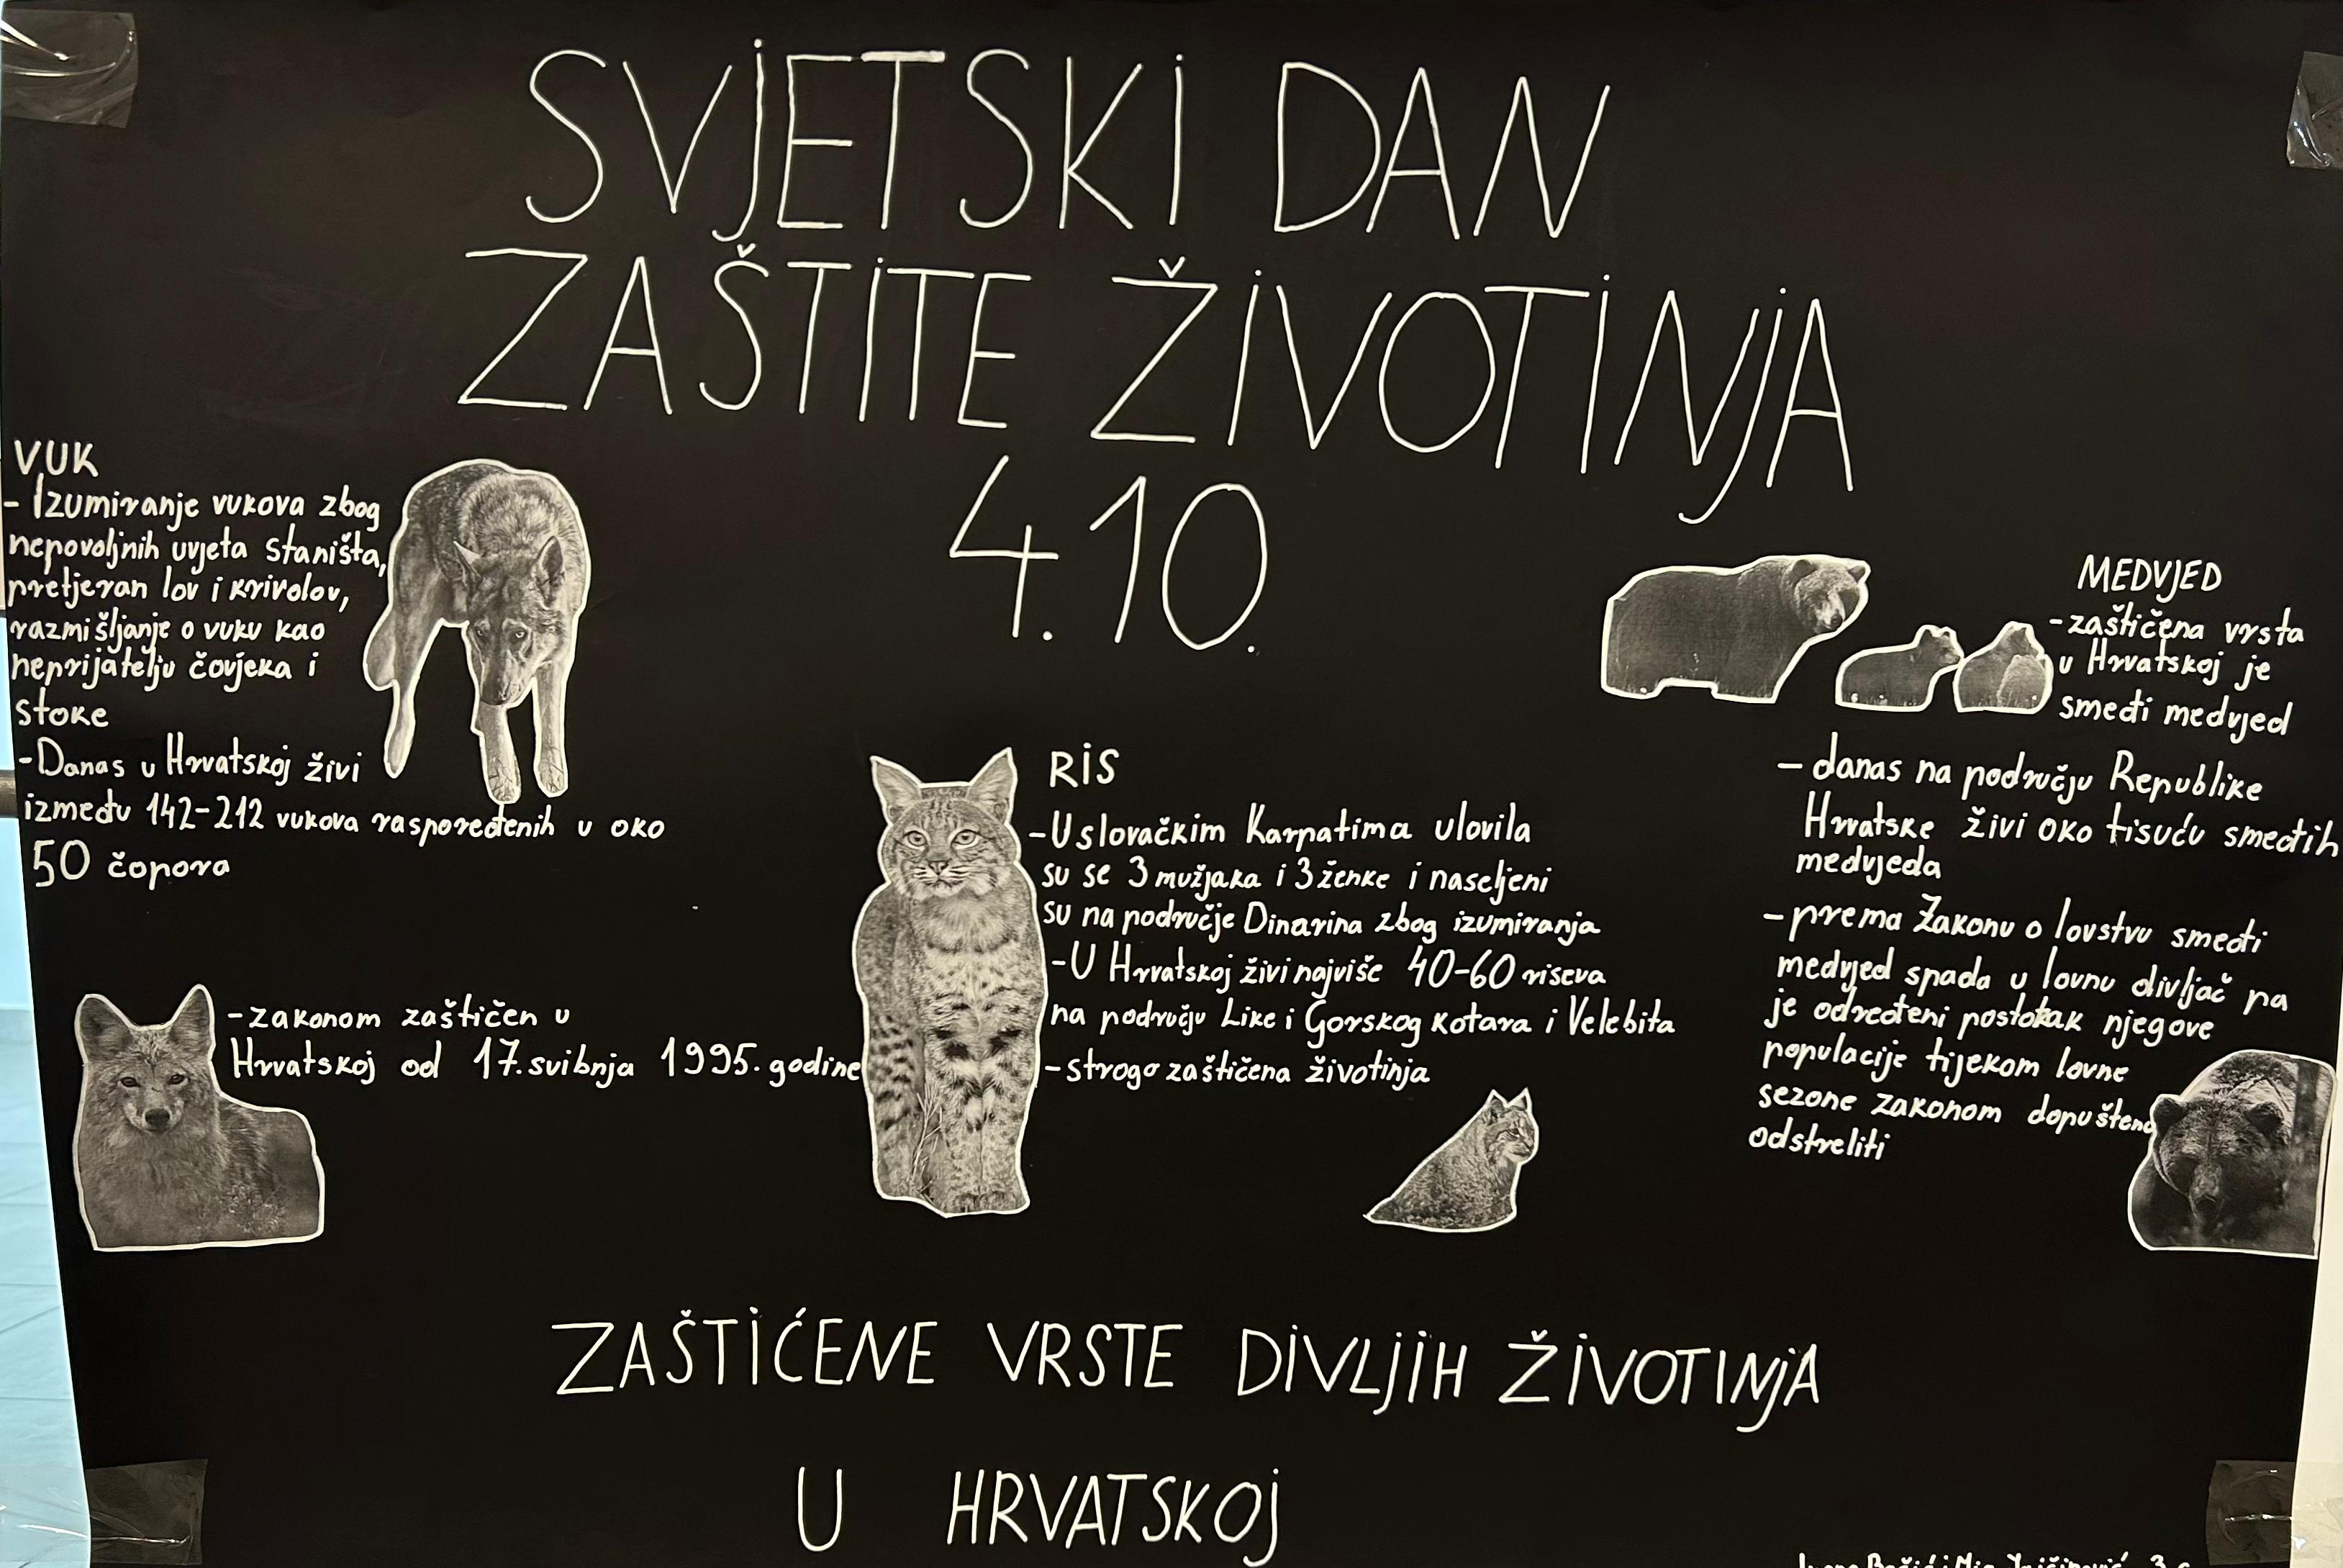 SVJETSKI DAN
ZAŠTITE ŽIVOTINJA
4.10.
VUK
- Izumiranje vukova zbog
nepovoljnih uvjeta staništa,
pretjeran lov i krivolov,
razmišljanje o vuku kao
neprijatelju čovjeka i
stoke
-Danas u Hrvatskoj živi
između 142-212 vukova raspoređenih u oko
50 čopora
-zakonom zaštičen u
Hrvatskoj od 17. svibnja 1995. godine
RIS
-U slovačkim Karpatima ulovila
su se 3 mužjaka i 3 ženke i naseljeni
su na područje Dinarina zbog izumiranja
-U Hrvatskoj živi najviše 40-60 riseva
na području Like i Gorskog kotara i Velebita
-strogo zaštičena životinja
MEDVJED
-zaštičena vrsta
u Hrvatskoj je
smeđi medvjed
- danas na području Republike
Hrvatske živi oko tisuću smeđih
medvjeda
-prema Zakonu o lovstvu smeđi
medvjed spada u lovnu divljač pa
je određeni postotak njegove
populacije tijekom lovne
sezone zakonom dopušteno
odstreliti
ZAŠTIĆENE VRSTE DIVLJIH ŽIVOTINJA
U HRVATSKOJ